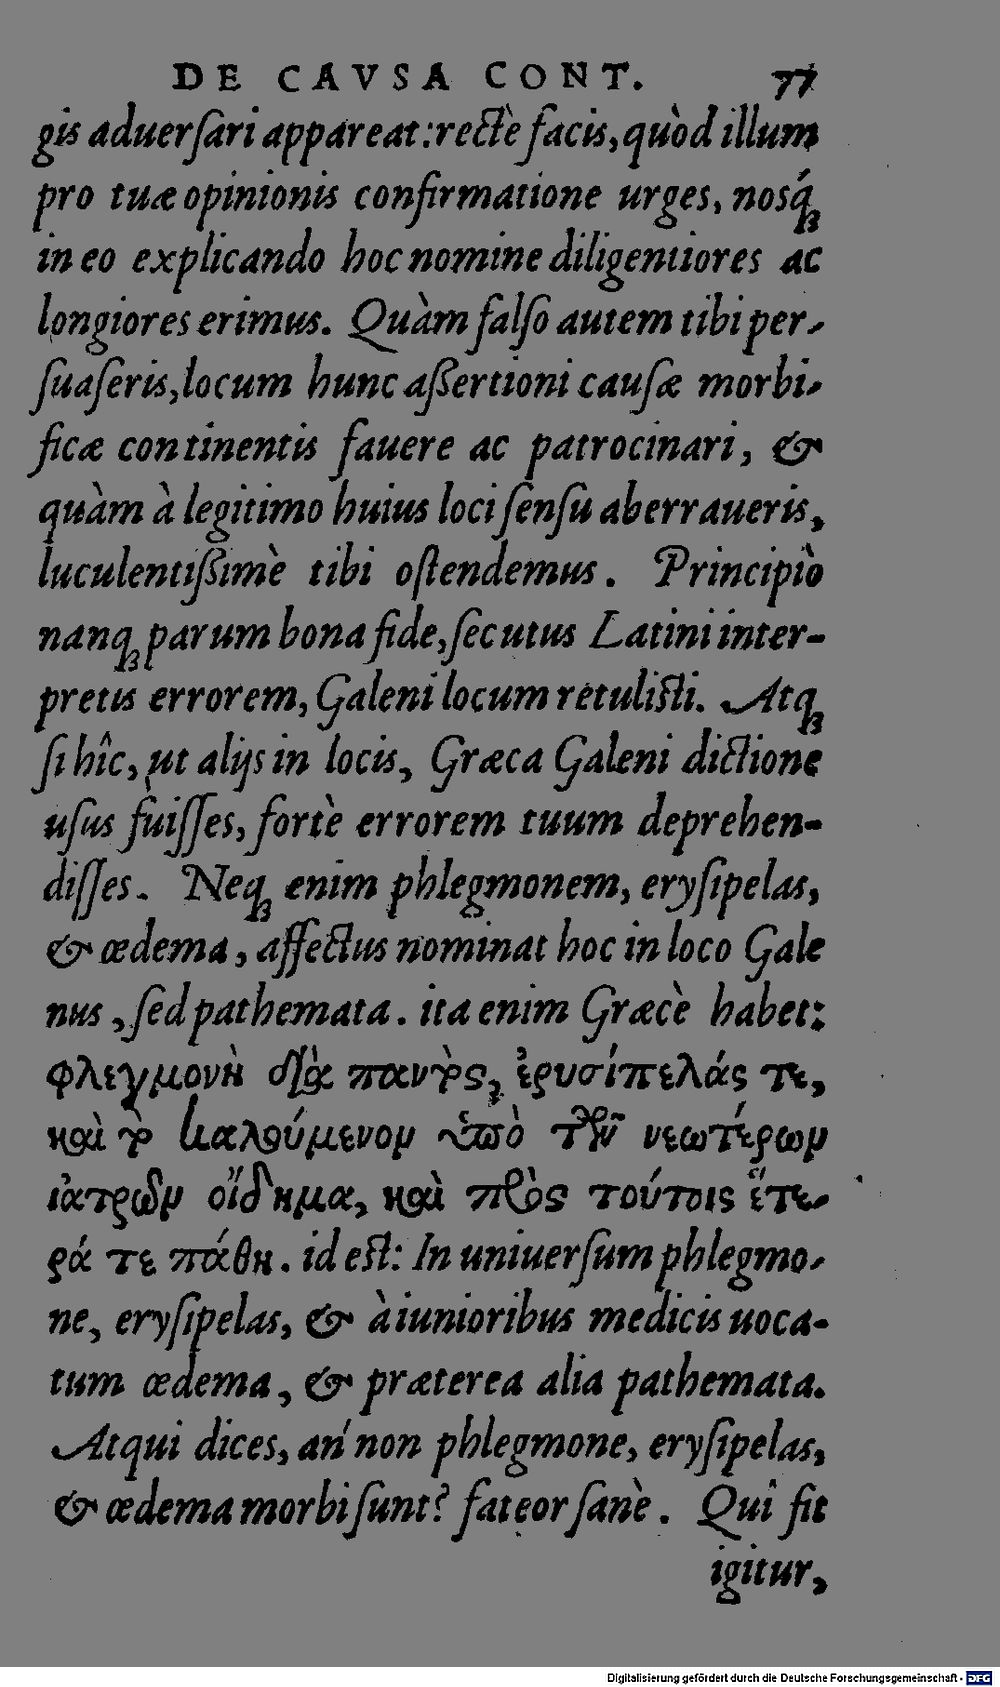 DE CAVSA CONT. 77
gis aduerſari appareat: rectè facis, quòd illum
pro tuæ opinionis confirmatione urges, nosq́ꝫ
in eo explicando hoc nomine diligentiores ac
longiores erimus. Quàm falſo autem tibi per-
ſuaſeris, locum hunc aßertioni cauſæ morbi-
ficæ continentis fauere ac patrocinari, &
quàm à legitimo huius loci ſenſu aberraueris,
luculentißimè tibi oſtendemus. Principiò
nanqꝫ parum bona fide, ſecutus Latini inter-
pretis errorem, Galeni locum retuliſti. Atqꝫ
ſi hîc, ut alijs in locis, Græca Galeni dictione
uſus fuiſſes, fortè errorem tuum deprehen-
diſſes. Neqꝫ enim phlegmonem, eryſipelas,
& œdema, affectus nominat hoc in loco Gale
nus, ſed pathemata. ita enim Græcè habet:
φλεγμονὴ διὰ παντὸς, ἐρυσίπελάς τε,
καὶ τὸ καλούμενον ὑπὸ τῶν νεωτέρων
ἰατρῶν οἴδημα, καὶ πρὸς τούτοις ἕτε-
ρά τε πάθη. id eſt: In uniuerſum phlegmo-
ne, eryſipelas, & à iunioribus medicis uoca-
tum œdema, & præterea alia pathemata.
Atqui dices, an' non phlegmone, eryſipelas,
& œdema morbi ſunt? fateor ſanè. Quî fit
igitur,
Digitalisierung gefördert durch die Deutsche Forschungsgemeinschaft - DFG